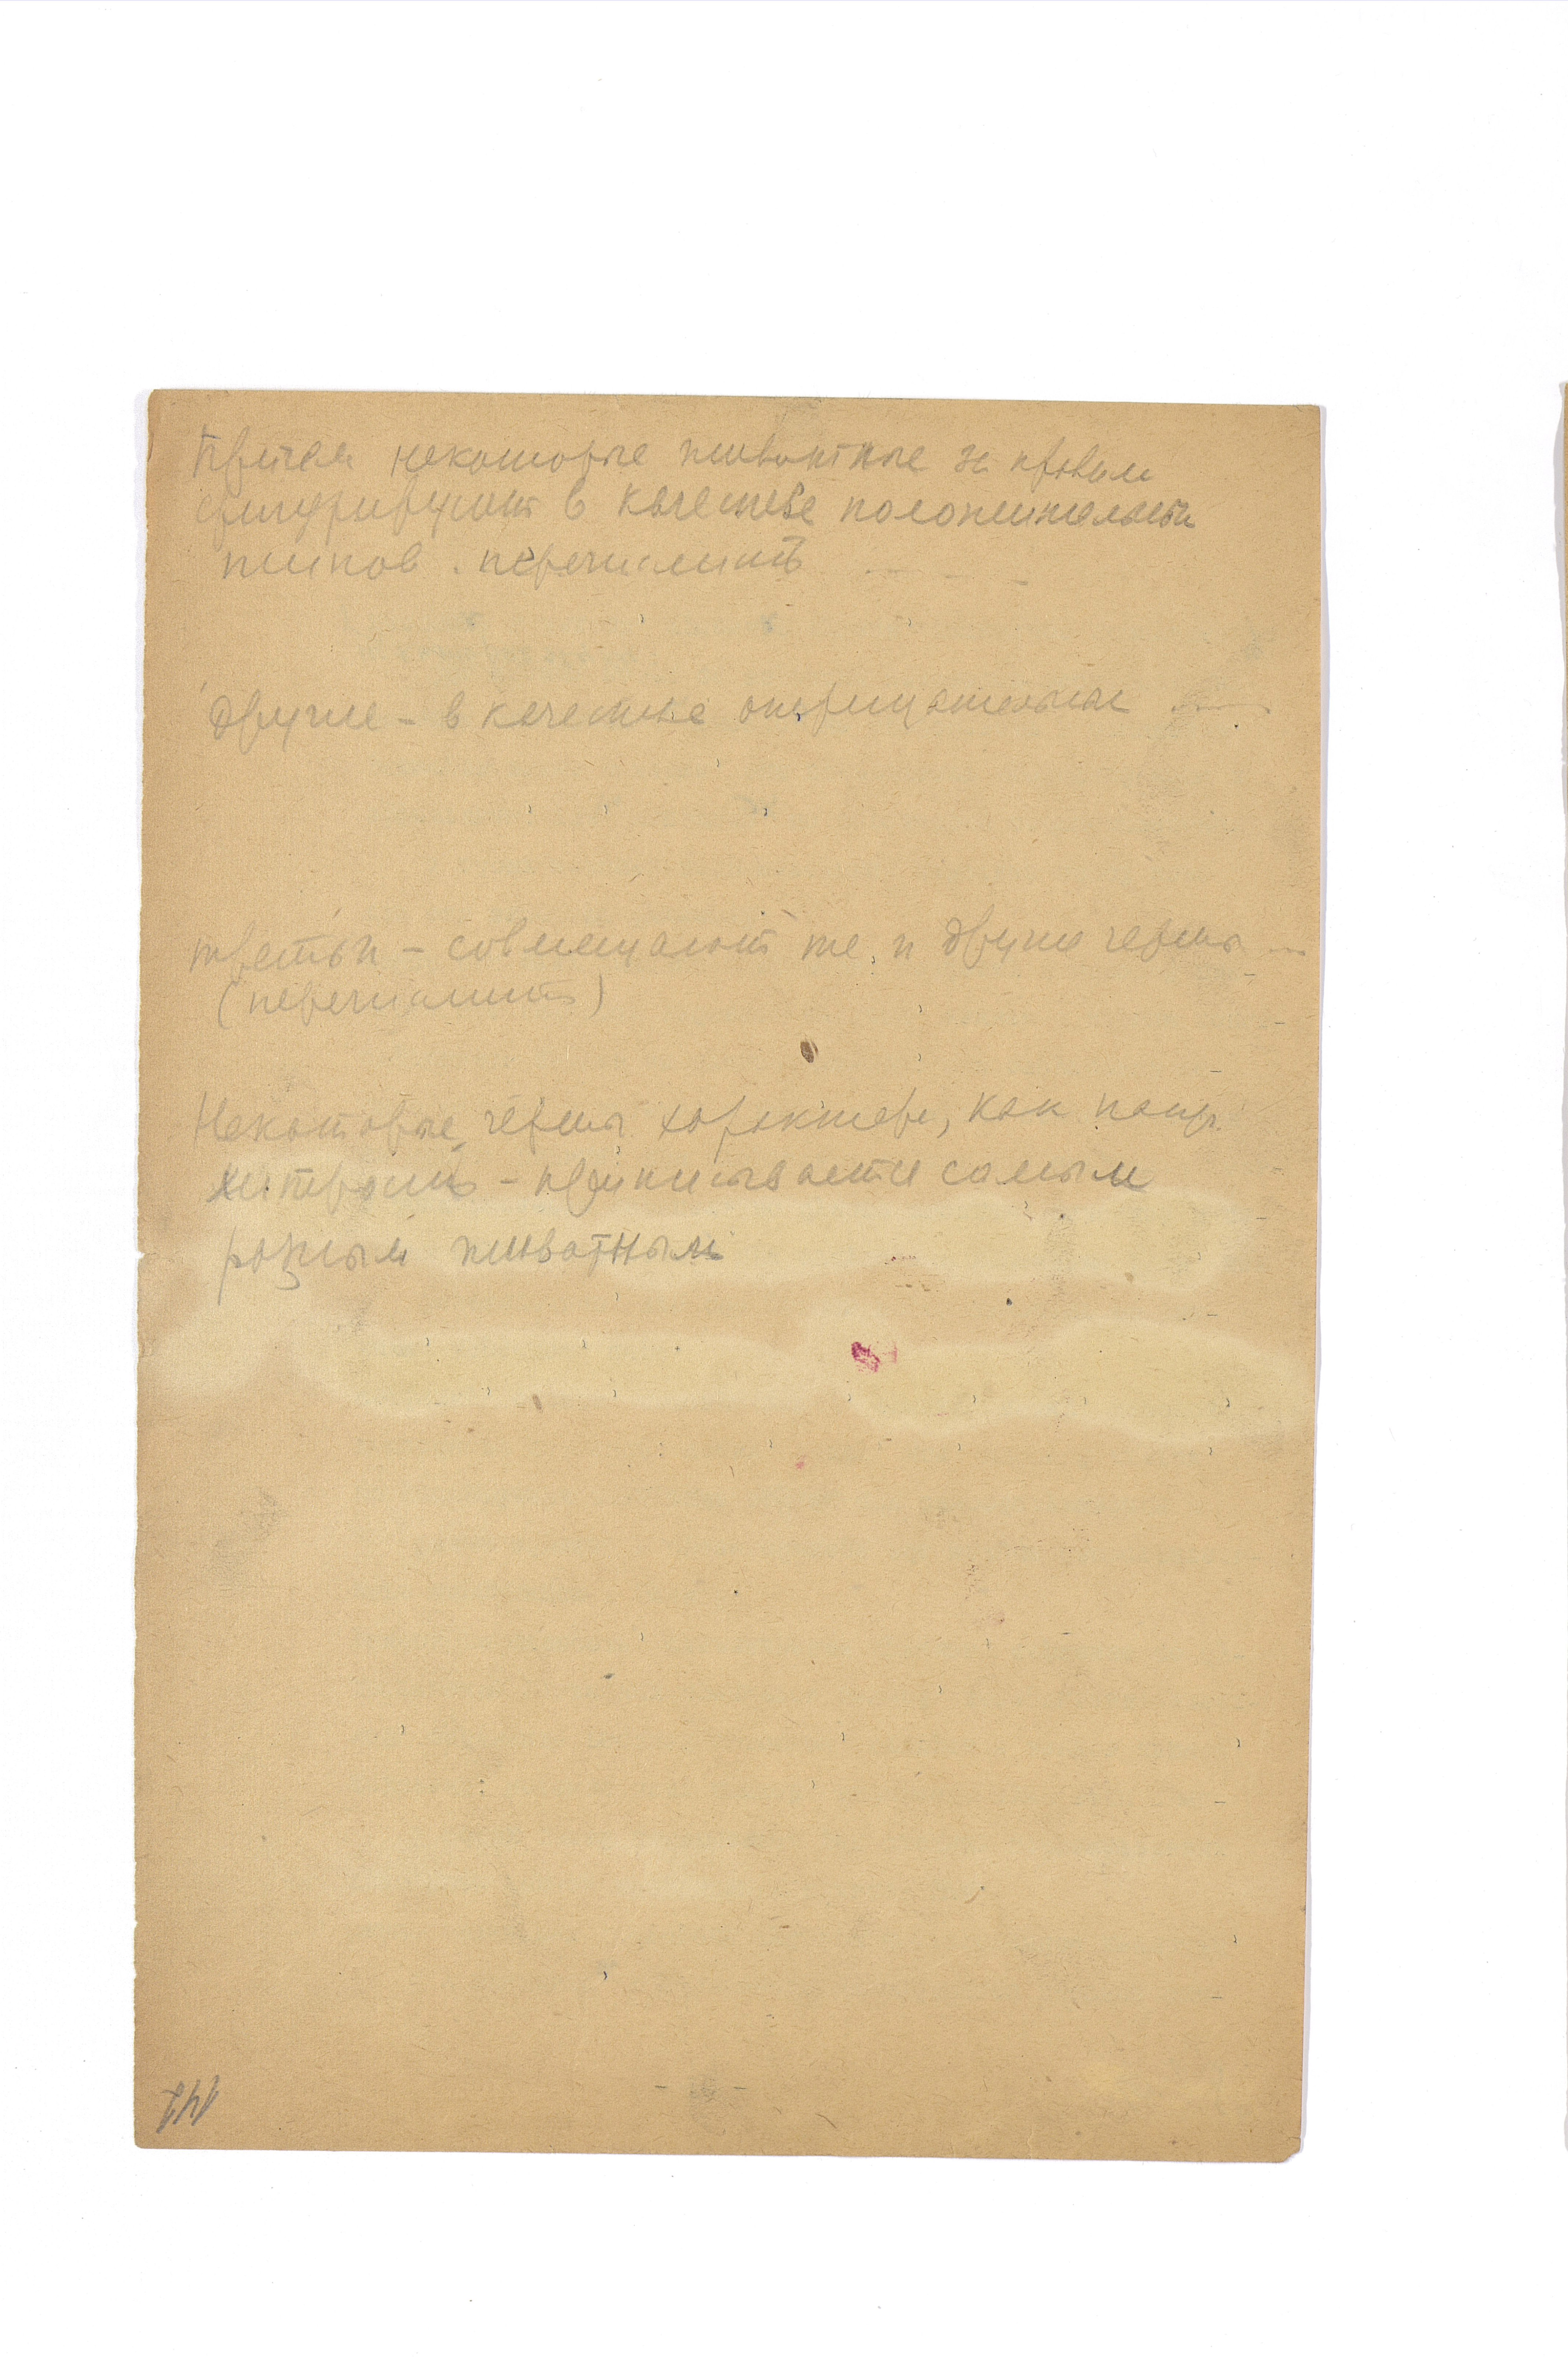 Причем некоторые животные
фигурируют в качестве положительных
типов. перечислить
другие – в качестве отрицательных
третьи – совмещают те и другие черты
(перечислить)
Некоторые черты характера, как напр.
хитрость – приписывается самым
разным животным